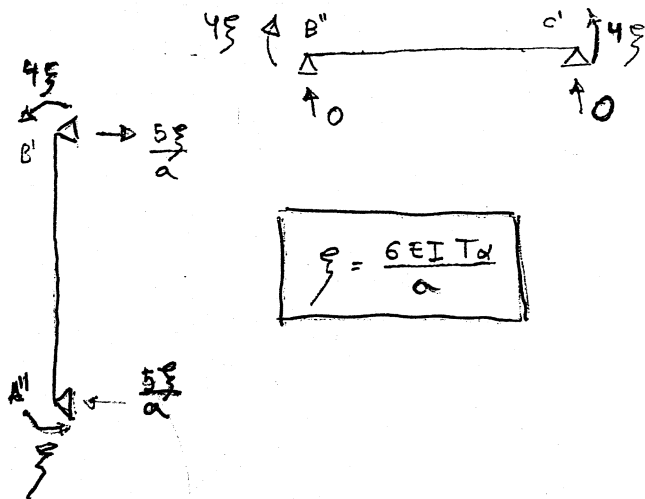 4ξ B" C' 4ξ
0 0
4ξ
B' 5ξ/a
ξ = 6 EI Tα / a
A" 5ξ/a
ξ